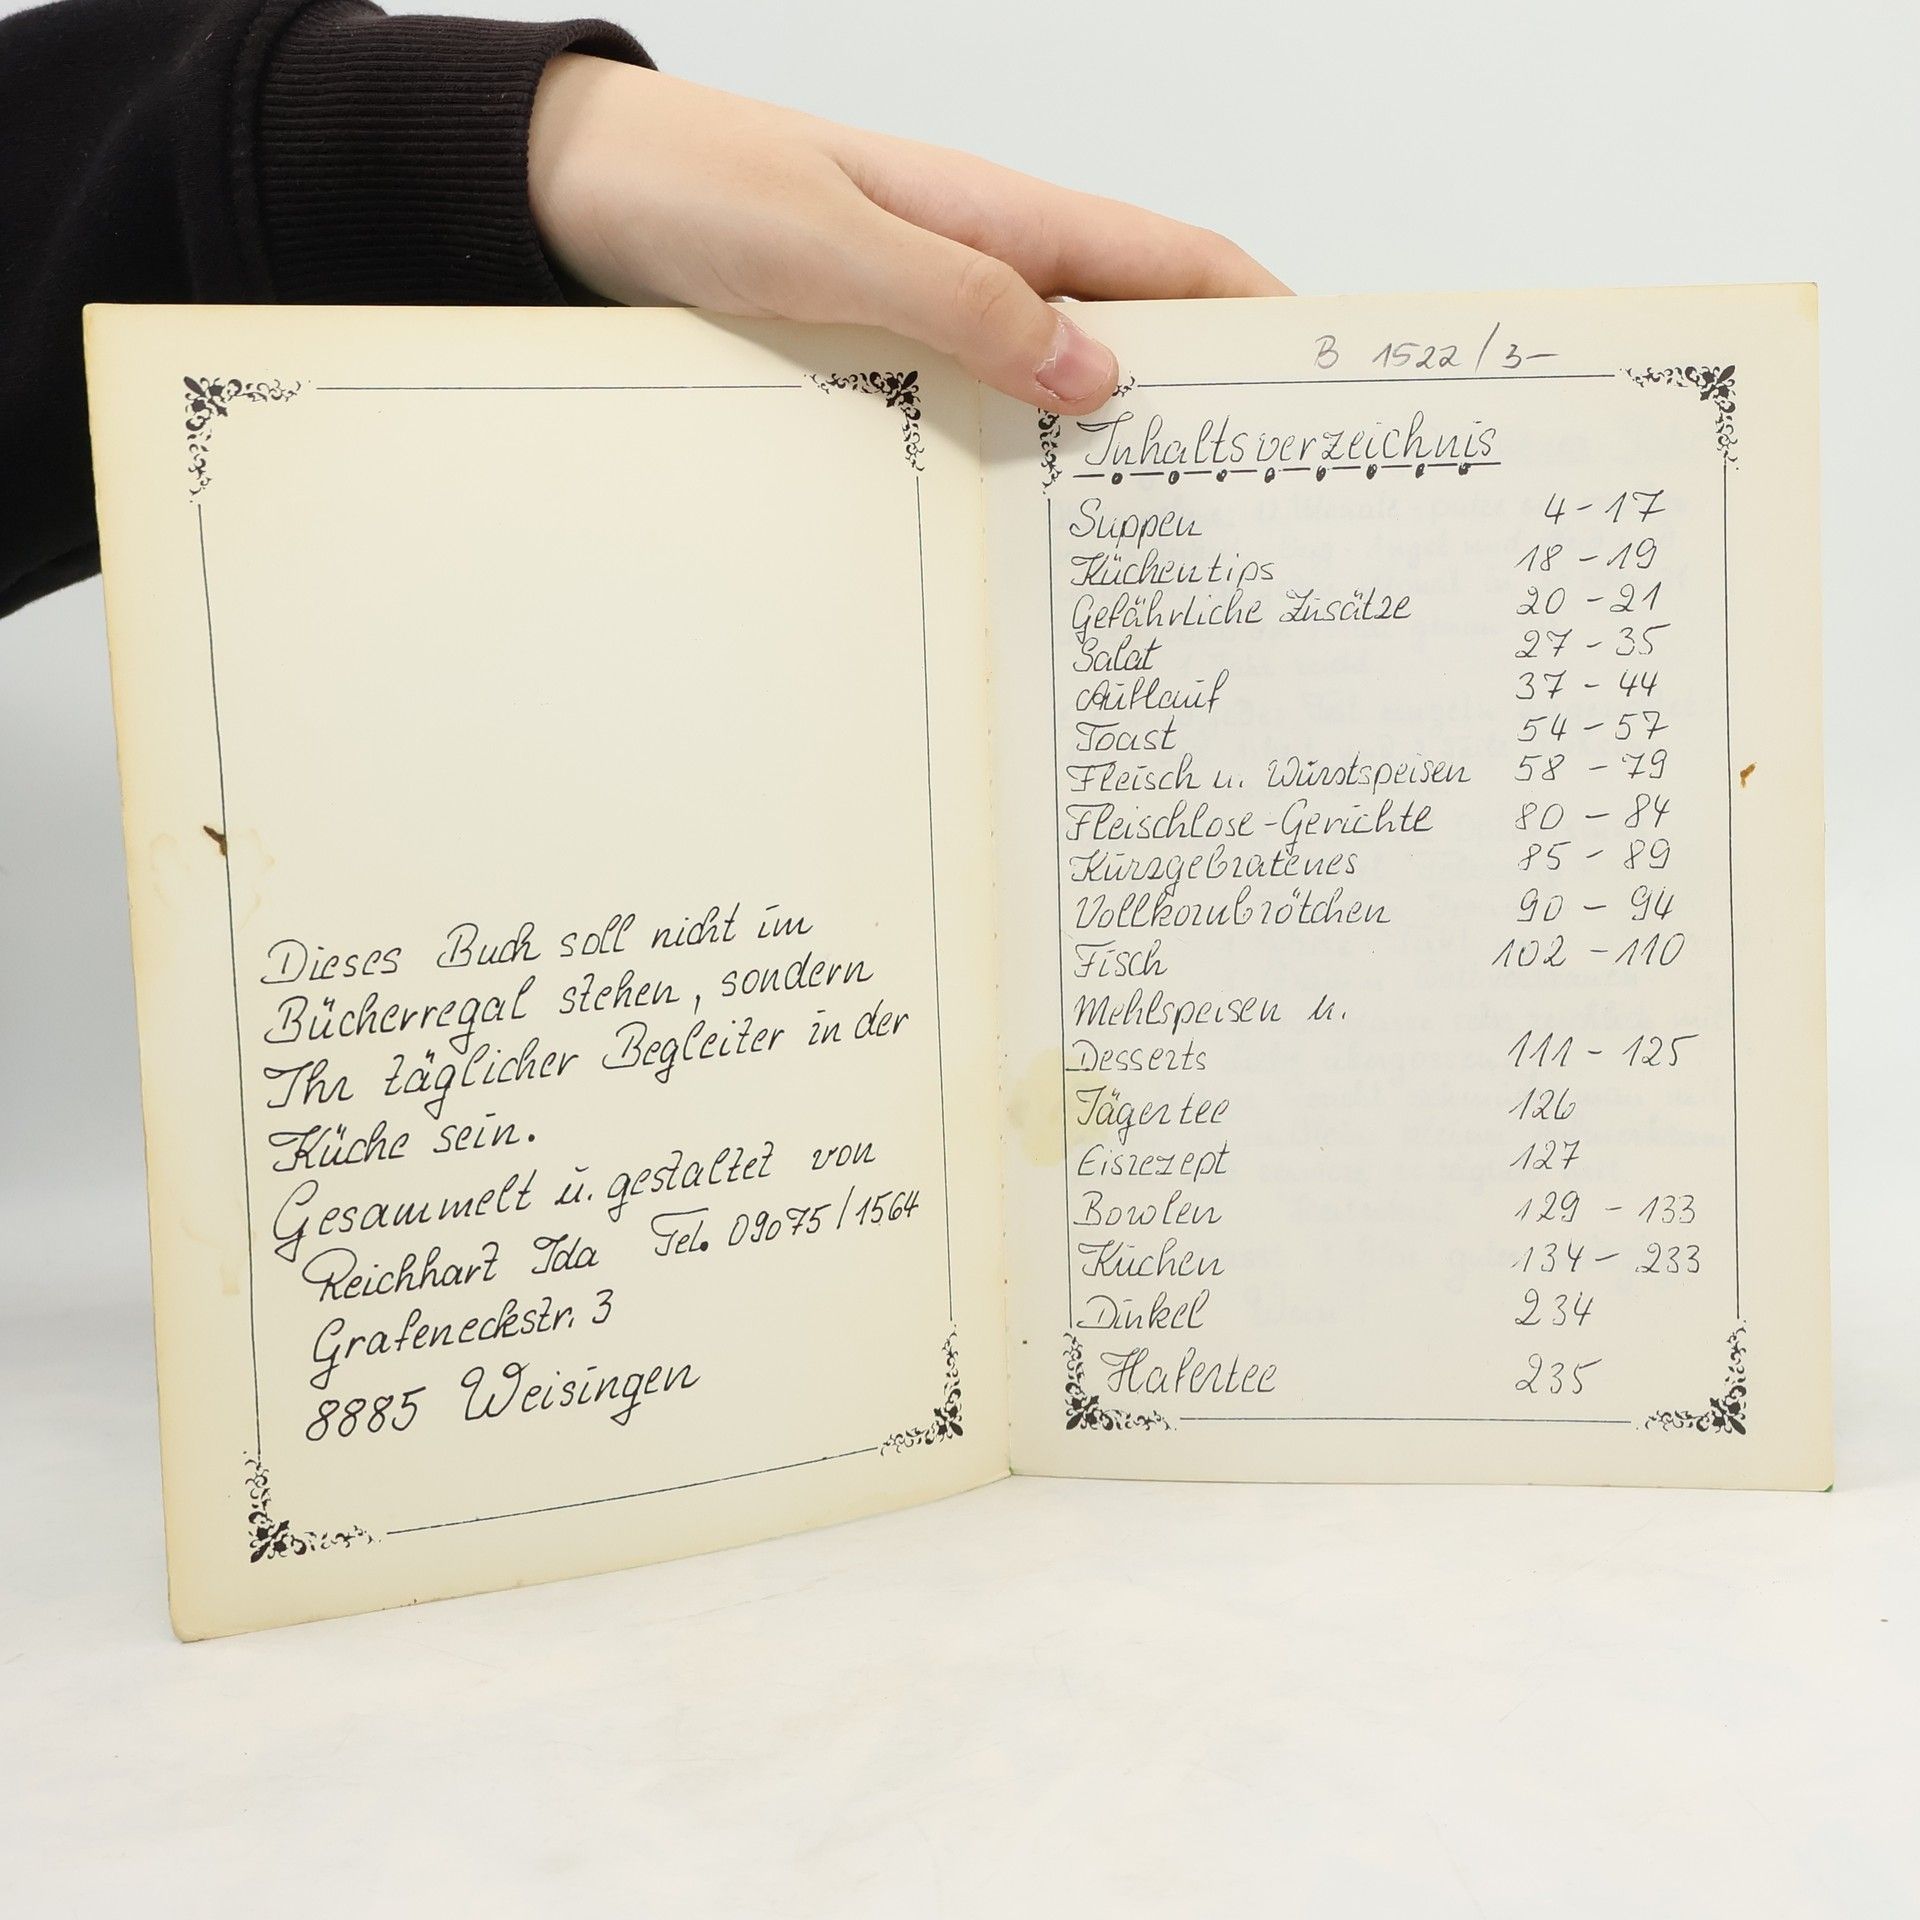 Dieses Buch soll nicht im
Bücherregal stehen, sondern
Ihr täglicher Begleiter in der
Küche sein.
Gesammelt u. gestaltet von
Reichhart Ida Tel. 09075/1564
Grafeneckstr. 3
8885 Weisingen
B 1522/3-
Inhaltsverzeichnis
Suppen 4-17
Küchentips 18-19
Gefährliche Zusätze 20-21
Salat 27-35
Auflauf 37-44
Toast 54-57
Fleisch u. Wurstspeisen 58-79
Fleischlose-Gerichte 80-84
Kurzgebratenes 85-89
Vollkornbrötchen 90-94
Fisch 102-110
Mehlspeisen u.
Desserts 111-125
Jägertee 126
Eisrezept 127
Bowlen 129-133
Kuchen 134-233
Dinkel 234
Hafertee 235